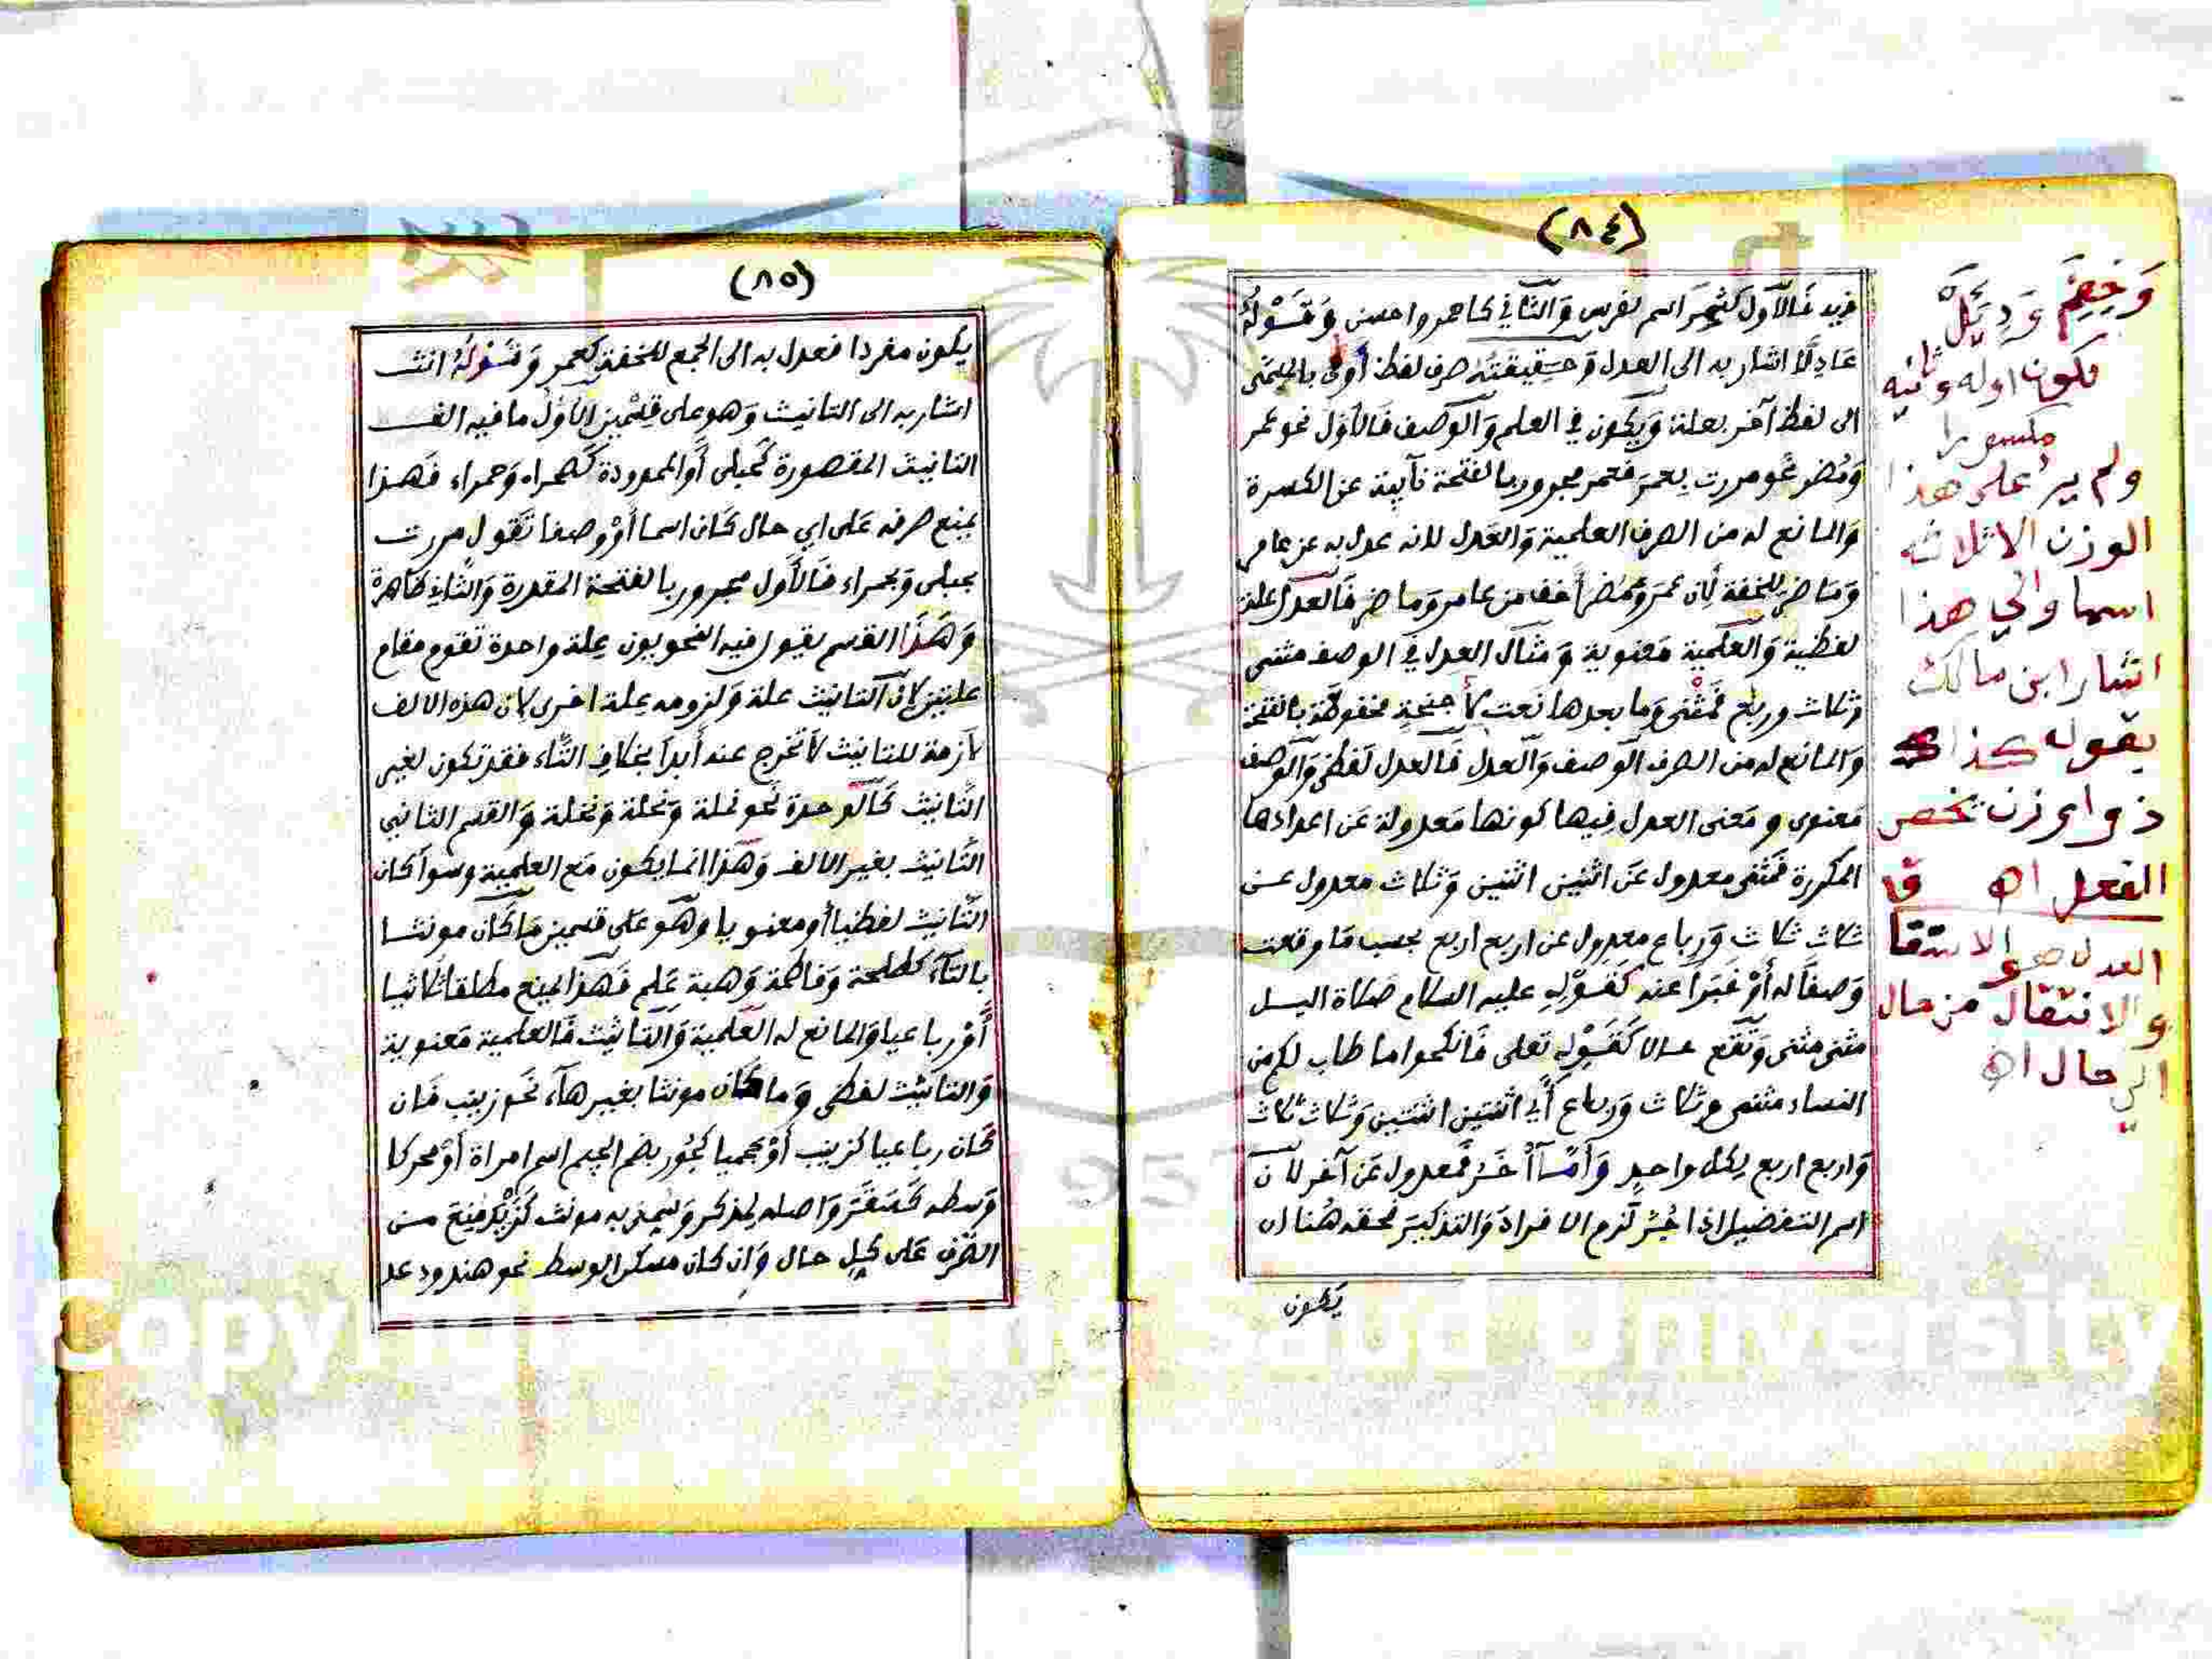 (٨٤)
فريد فَالأول كشمر اسم لفرس وَالثَّاني كاحمر واحسن وَقَوْلهُ
عَادِلًا اشار به الى العدل وَحقِيقَتُه صرف لفظ أولى بالمسمى
الى لفظ آخر بعلة وَيكون في العلم وَالوصف فَالأوَل نحو عمر
وَمُضر نحو مررت بِعمَرَ فعمر مجرور بالفتحة نآيبة عن الكسرة
وَالمانع له من الصرف العلمية وَالعَدل لانه عدل به عن عامر
وَمَاضر للخفة لِأن عمَرَ وَمُضَر أخف من عامر وَماضر فَالعدل علة
لفظية وَالعَلمية مَعنوية وَمثال العدل في الوصف مثنى
وثلاث ورباع فَمثْنى وَما بعدها نَعت لأجنحةٍ مخفوظة بالفتحة
وَالمانع له من الصرف الوصف وَالعدل فَالعدل لفظى وَالوصف
مَعنوى ومَعنى العدل فِيها كونها مَعدولة عَن اعدادها
المكررة فمَثنى معدول عَن اثنين اثنين وَثلاث معدول عن
ثلاث ثلاث وَرباع معدول عن اربع اربع بحسب مَا وقعت
وَصفاً له أوْ خَبَراً عنه كَقَوْلِهِ عليه السلام صَلاة اليل
مثنى مثنى وَتقَع حالا كَقَوْلِهِ تعلى فَانكحوا ما طاب لكم من
النساء مثنى وثلاث وَرباع أي اثنتين اثنتين وَثلاث ثلاث
وَاربع اربع لِكل واحدٍ وَأمَّا أُخَر فَمعدول عَن آخر لأن
اسم التفضيل اذا جُرّ لَزم الافرادَ وَالتذكيرَ فحقه هُنا ان
يَكون
وَخِضَّم وَدِئِلَ
يكون اوله وثانيه
مكسورا
ولم يرد على هذا
الوزن الا ثلاثة
اسما والى هذا
اشار ابن مالك
بقوله كذاك
ذو اوزن تخص
الفعل اه
العدل هو الاشتقاق
والانتقال من حال
الى حال اه
(٨٥)
يكون مفردا فعدل به الى الجمع للخفة كعمر وَقَوْلهُ انث
اشار به الى التانيث وَهو على قِسْمين الاوْلُ ما فيه الف
التانيث المقصورة كَحبلى أو الممدودة كَصحراء وَحمراء فَهذا
يمنع صرفه عَلى اي حال كَان اسما أوْ وصفا تَقول مررت
بحبلى وَبحمراء فَالأَول مجرور بالفتحة المقدرة وَالثَّاني ظاهرة
وَهَذَا القسم يقول فيه النحويون عِلة واحدة تقوم مقام
علتين لأن التانيث علة وَلزومه عِلة اخرى لان هذه الالف
لآزمة للتانيث لَا تخرج عنه أبداً بخلاف التَّاء فقد تكون لغير
التَّانيث كَالوحدة نَحو نملة وَنحلة وَنخلة وَالقسم الثاني
التَّانيث بغير الالف وَهَذا انما يكون مَع العلمية وسوآ كان
التَّانيث لفظيا أو معنويا وَهو عَلى قسمين مَا كَان مونثا
بالتآء كطلحة وَفاطمة وَهبة عَلم فَهَذا يمنع مطلقا ثلاثيا
أَوْ رباعيا وَالمانع له العَلمية وَالتانيث فَالعلمية مَعنوية
وَالتانِيْث لفظى وَما كَان مونثا بغير هآء نحَو زينب فَان
كَان رباعيا كزينب أوْ عجميا كجُور بضم الجيم اسم امراة أوْ محركا
وَسطه كَسَقَرَ وَاصله لمذكر وَسُمى به مونث كَزَيْد مُنِع من
الصَّرف عَلى كُلِ حال وَان كان مسكن الوسط نحو هند ودعد